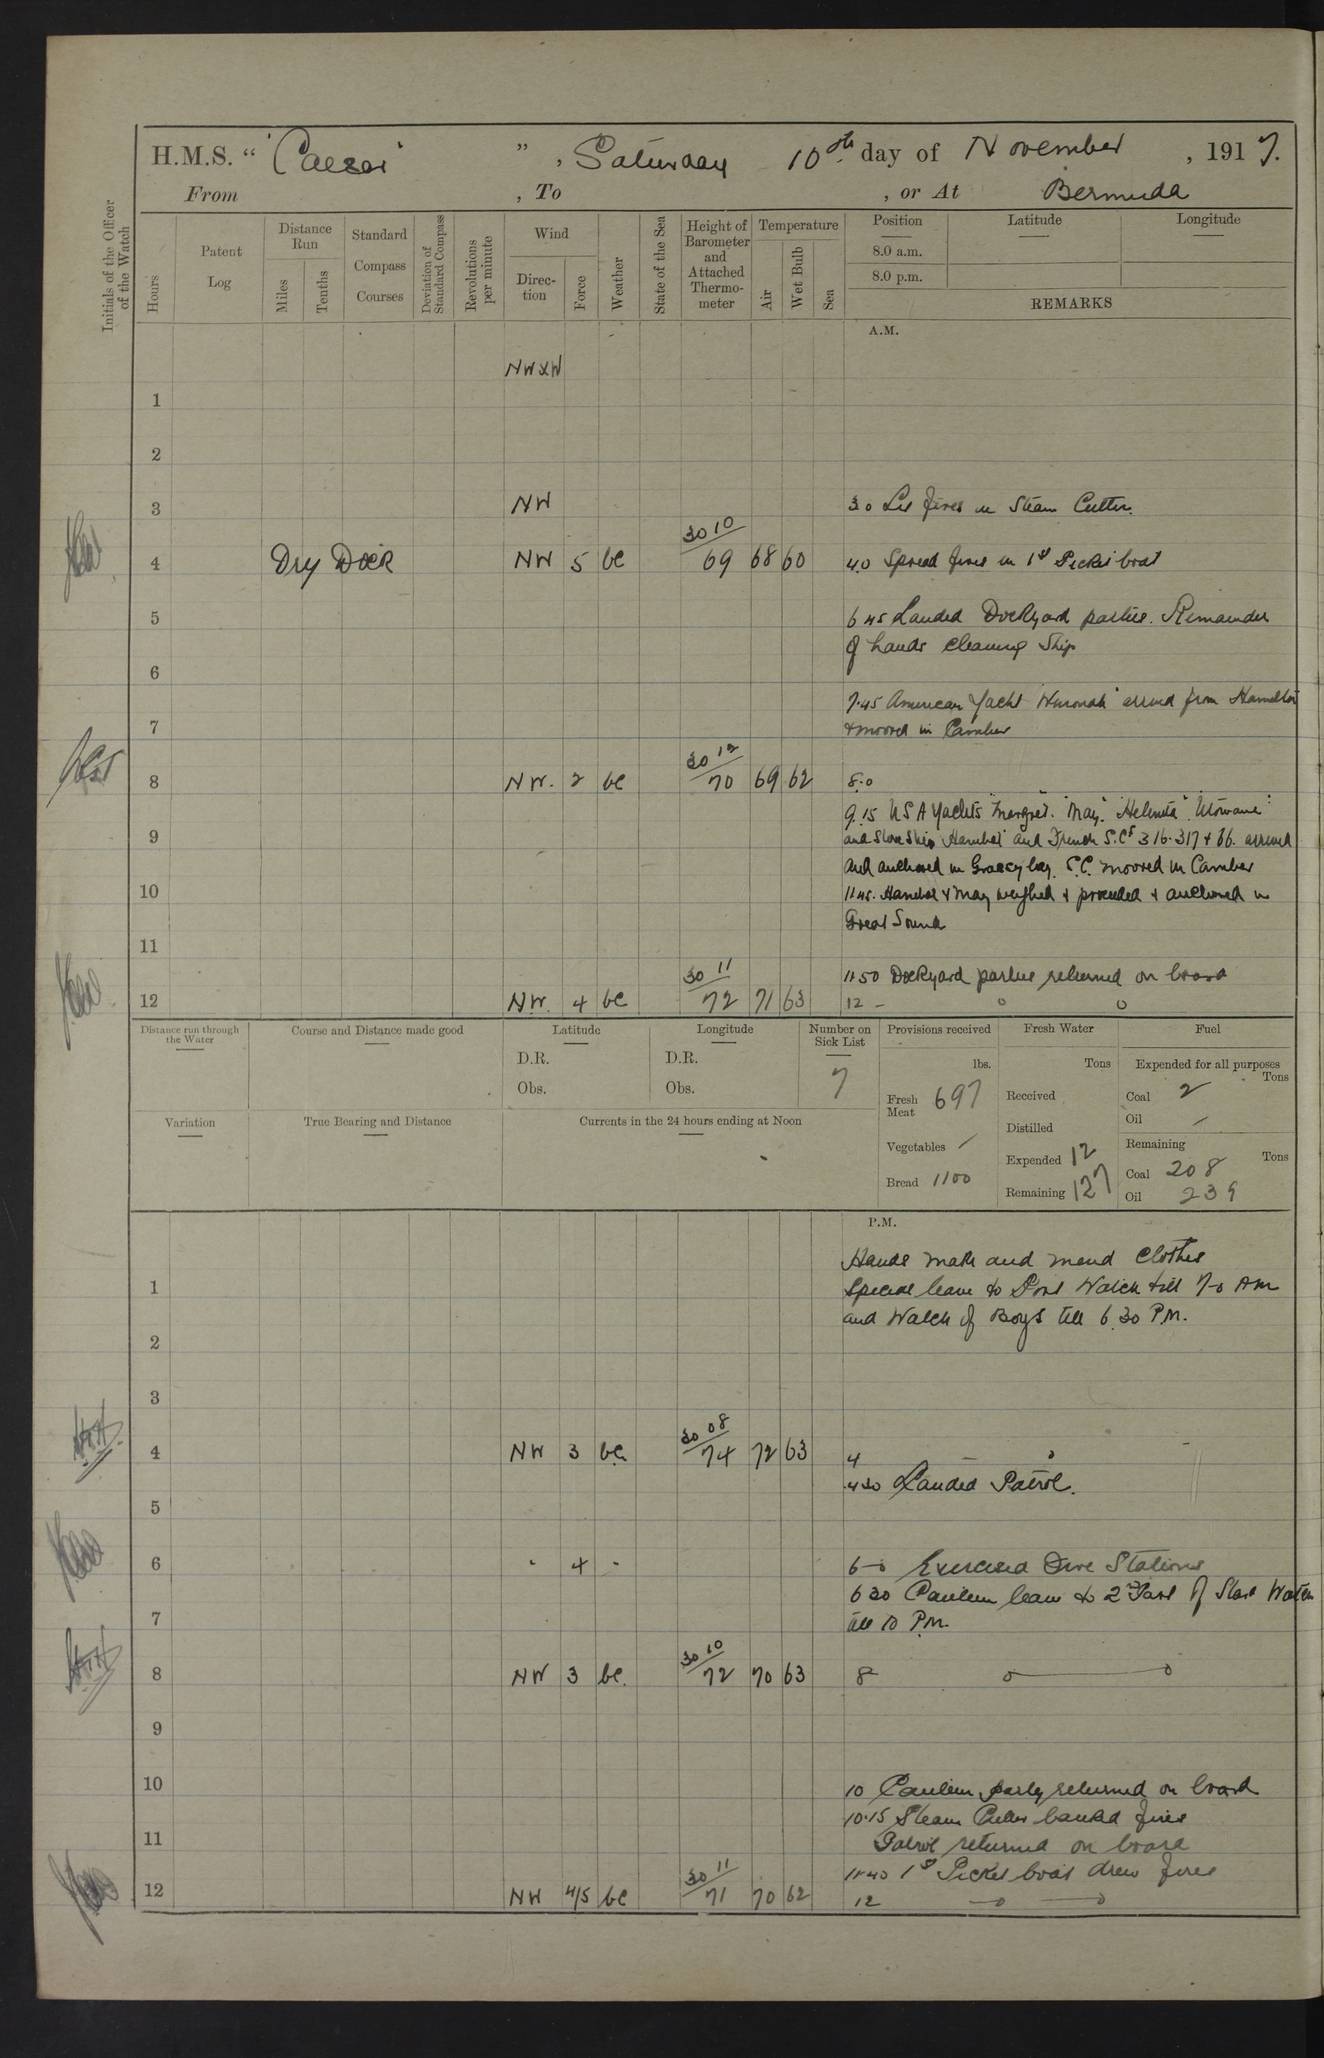 H.M.S. " Caesar " , Saturday 10th day of November , 1917.
From , To , or At Bermuda
Initials of the Officer of the Watch
Hours
Patent Log
Distance Run
Miles
Tenths
Standard Compass Courses
Deviation of Standard Compass
Revolutions per minute
Wind
Direction
Force
Weather
State of the Sea
Height of Barometer and Attached Thermometer
Temperature
Air
Wet Bulb
Sea
Position Latitude Longitude
8.0 a.m.
8.0 p.m.
REMARKS
A.M.
NWxW
1
2
3 NW 3 0 Lit fires in Steam Cutter.
30 10
4 Dry Dock NW 5 bc 69 68 60 4.0 Spread fires in 1st Picket boat
5 6 45 Landed Dockyard parties. Remainder
of hands cleaning Ship
6
7.45 American Yacht arrived from Hamilton
7 & moored in Camber
30 12
8 NW. 2 bc 70 69 62 8.0
9.15 USA Yachts "Margret". "May." "Helenita" "Utowana"
9 and Store Ship Hannibal and French S.Cs 316. 317 & 66. arrived
and anchored in Grassy bay. S.C. moored in Camber
10 11 45. Hannibal & May weighed & proceeded & anchored in
Great Sound
11
30 11 11 50 Dockyard parties returned on board
12 NW. 4 bc 72 71 63 12 -
Distance run through the Water
Course and Distance made good
Latitude
D.R.
Obs.
Longitude
D.R.
Obs.
Number on Sick List
7
Provisions received
lbs.
Fresh Meat 697
Vegetables /
Bread 1100
Fresh Water
Tons
Received
Distilled
Expended 12
Remaining 127
Fuel
Expended for all purposes
Tons
Coal 2
Oil /
Remaining
Tons
Coal 208
Oil 239
Variation
True Bearing and Distance
Currents in the 24 hours ending at Noon
P.M.
Hands make and mend Clothes
1 Special leave to Port Watch till 7-0 AM
and Watch of Boys till 6.30 P.M.
2
3
30 08
4 NW 3 bc. 74 72 63 4
4 30 Landed Patrol.
5
6 " 4 " 6-0 Exercised Fire Stations
6 30 Canteen leave to 2nd Part of Starbd Watch
7 till 10 P.M.
30 10
8 NW 3 bc. 72 70 63 8
9
10 10 Canteen party returned on board
10.15 Steam Cutter banked fires
11 Patrol returned on board
30 11 11.40 1st Picket boat drew fires
12 NW 4/5 bc 71 70 62 12